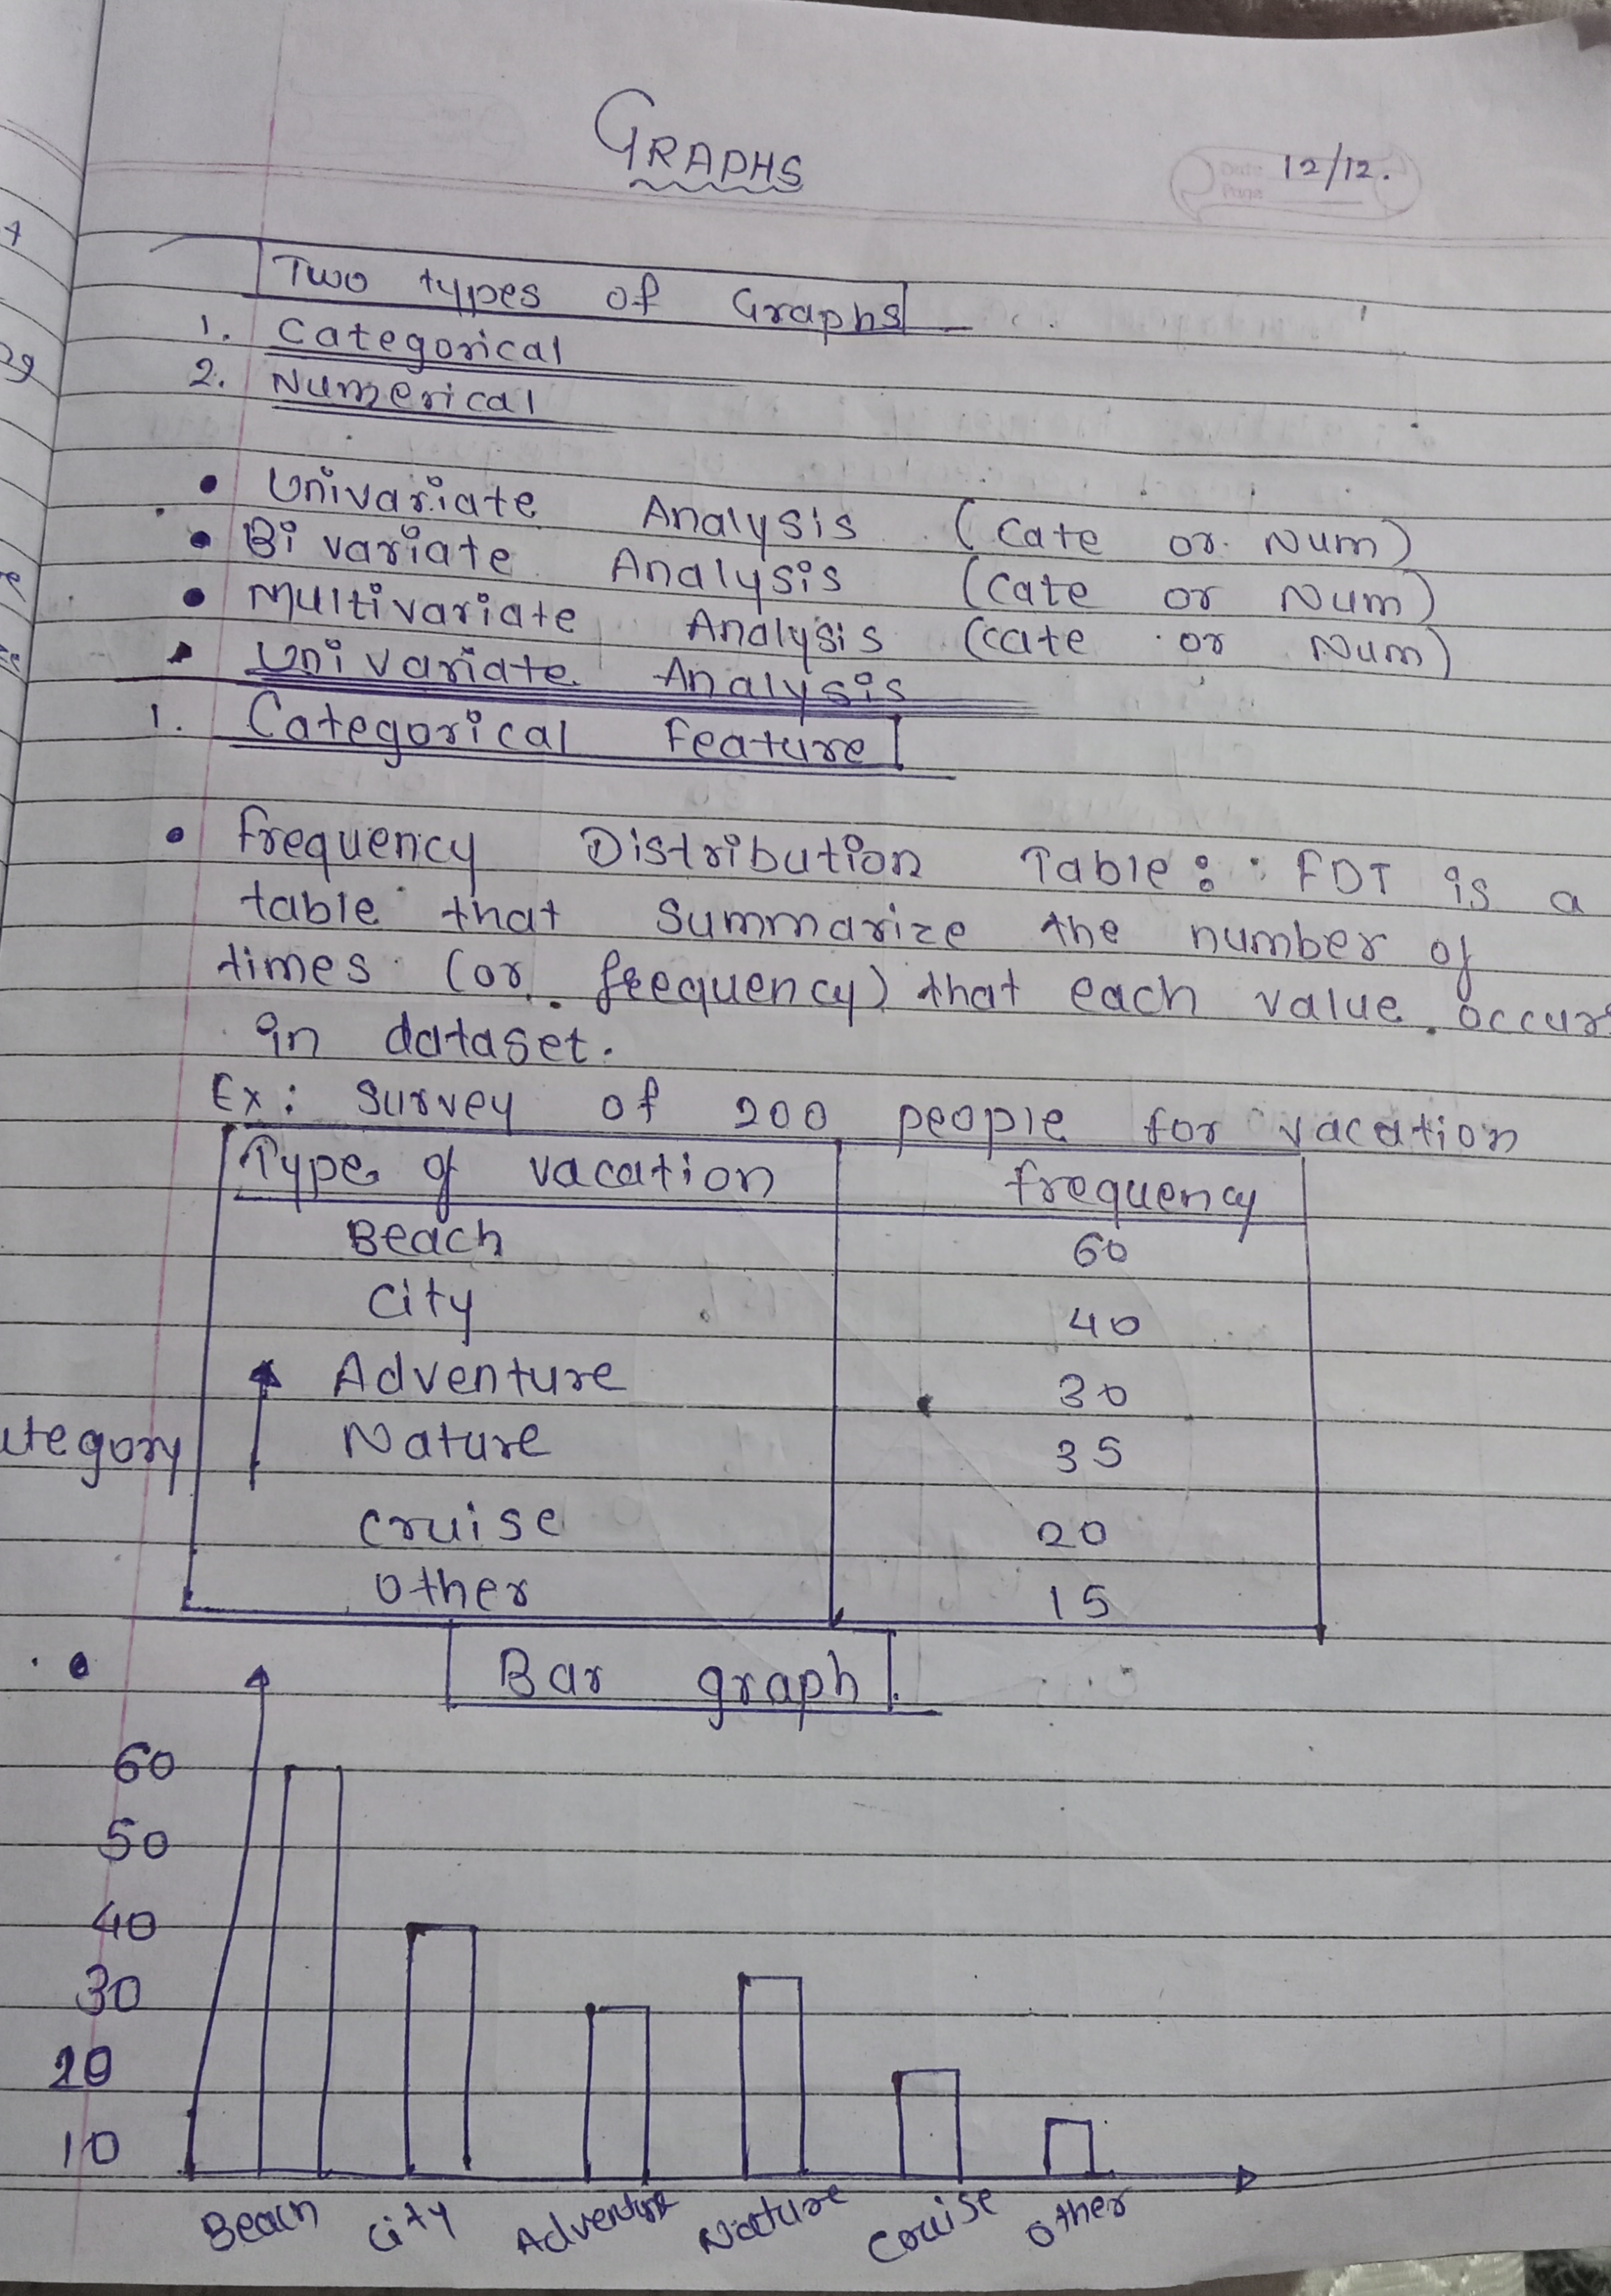 GRAPHS
Date
Page
12/12.
Two types of Graphs
1. Categorical
2. Numerical
• Univariate Analysis (Cate or Num)
• Bi variate Analysis (Cate or Num)
• Multivariate Analysis (Cate or Num)
Univariate Analysis
1. Categorical Feature
• Frequency Distribution Table: FDT is a
table that summarize the number of
times (or frequency) that each value occurs
in dataset.
Ex: Survey of 200 people for vacation
Type of vacation frequency
Beach 60
City 40
Adventure 30
Nature 35
Cruise 20
Other 15
ategory
• Bar graph
60
50
40
30
20
10
Beach City Adventure Nature Cruise Other